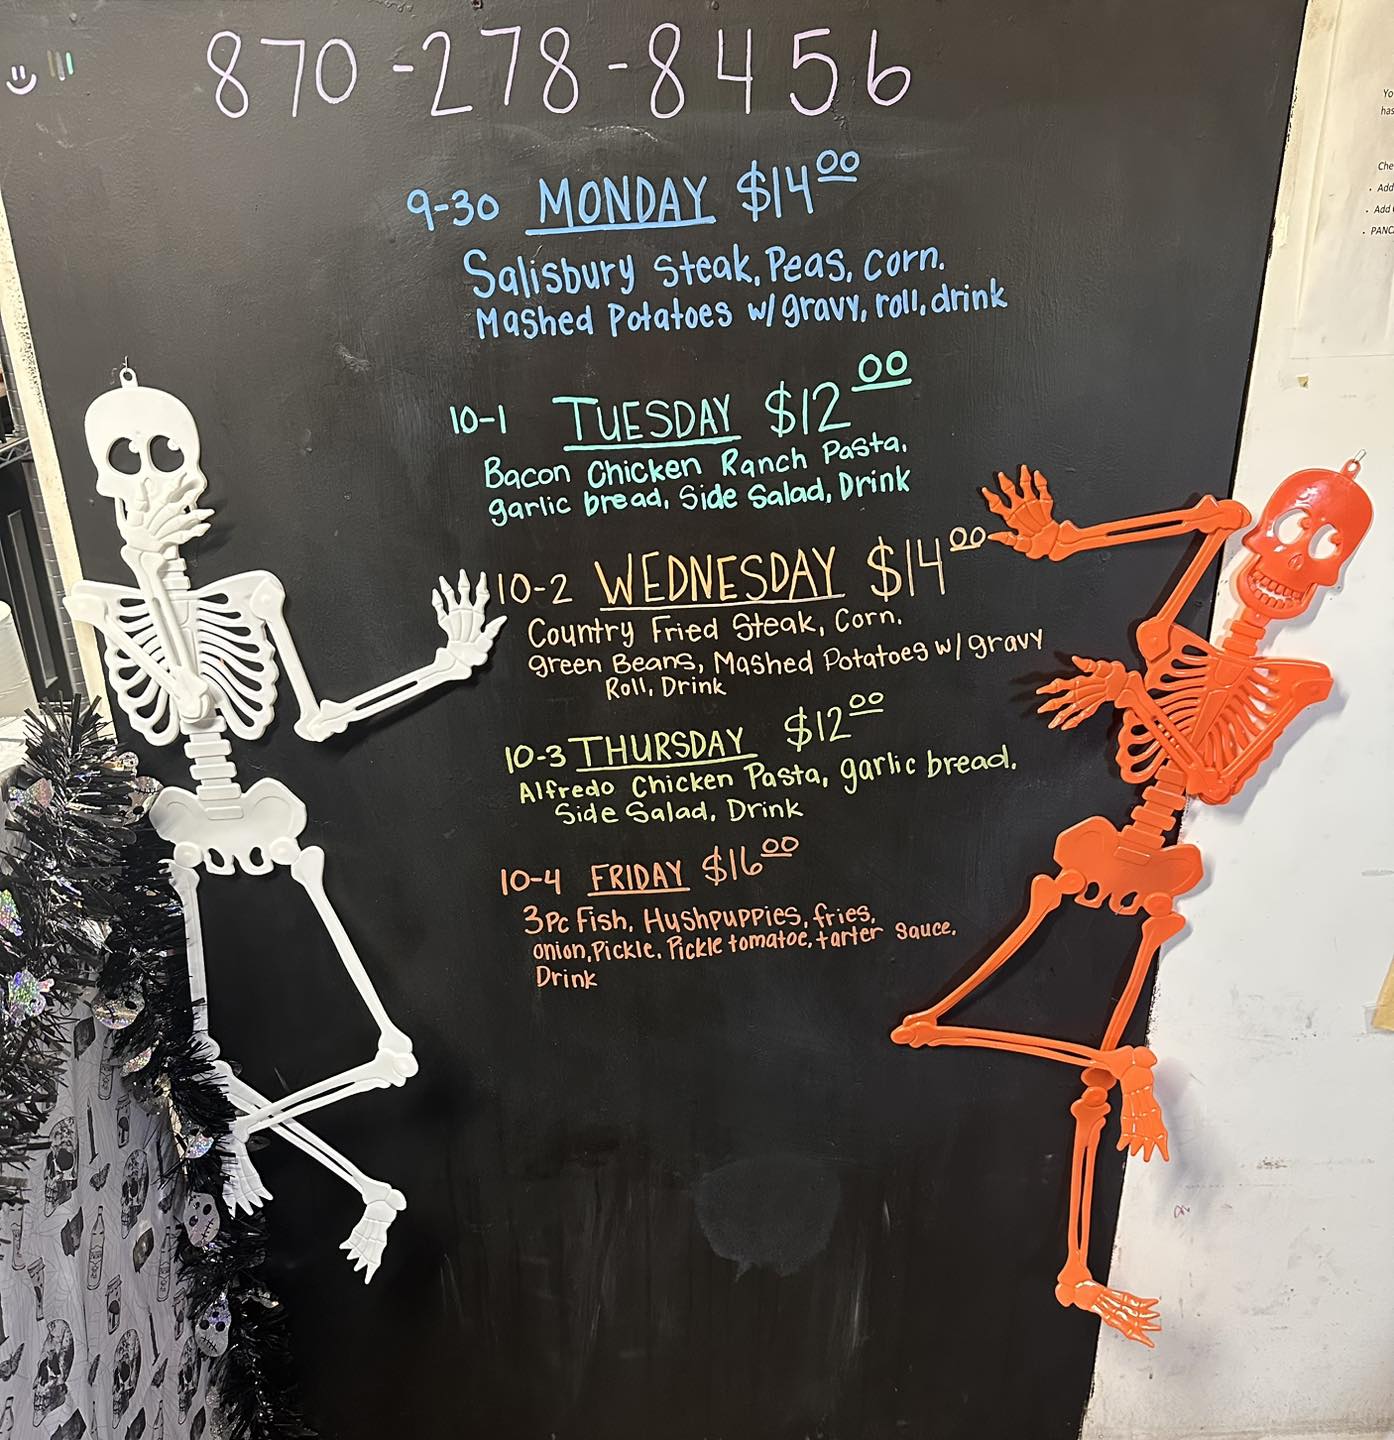 870-278-8456
9-30 MONDAY $14⁰⁰
Salisbury Steak, Peas, corn.
Mashed Potatoes w/ gravy, roll, drink
10-1 TUESDAY $12⁰⁰
Bacon Chicken Ranch Pasta,
garlic bread, Side Salad, Drink
10-2 WEDNESDAY $14⁰⁰
Country Fried Steak, Corn.
green Beans, Mashed Potatoes w/ gravy
Roll, Drink
10-3 THURSDAY $12⁰⁰
Alfredo Chicken Pasta, garlic bread.
Side Salad, Drink
10-4 FRIDAY $16⁰⁰
3Pc Fish, Hushpuppies, fries,
onion, Pickle, Pickle tomatoe, tarter sauce,
Drink
Yo
has
Che
• Add
• Add
• PANC